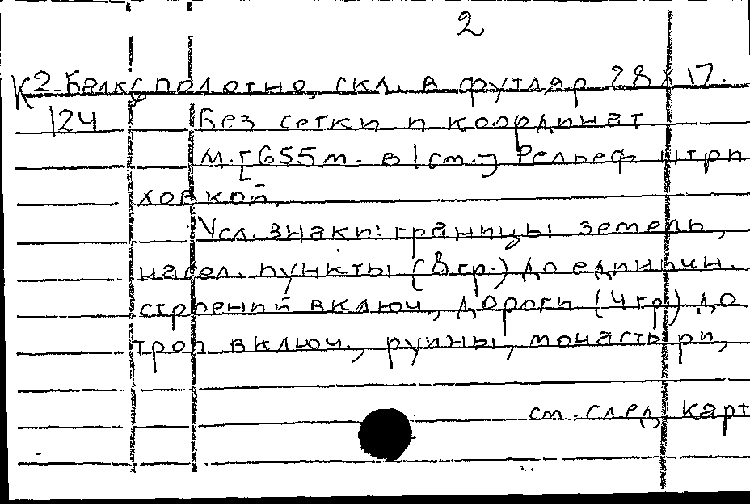 2
К2-Белк полотно, скл. в футляр 28 х 17.
124 Без сетки и координат
М.[655м. в 1см.] Рельеф штри
ховкой.
Усл. знаки: границы земель,
насел. пункты (8 гр.) до единичн.
строений включ., дороги (4 гр) до
троп включ., руины, монастыри,
см. след. карт